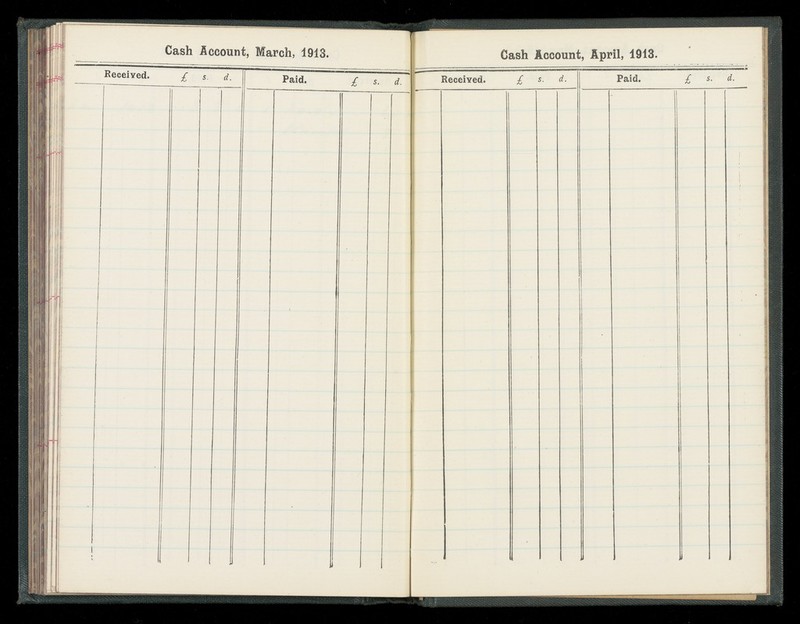 Cash Account, March, 1913.
Received. £ s. d. Paid. £ s. d.
Cash Account, April, 1913.
Received. £ s. d. Paid. £ s. d.